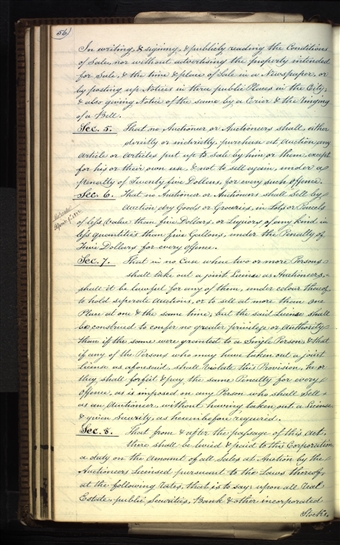 56
In writing, & signing, & publicly reading the Conditions
of Sale, nor without advertising the property intended
for Sale, & the time & place of Sale in a Newspaper, or
by posting up Notices in three public Places in the City,
& also giving Notice of the same by a Crier & the Ringing
of a Bell.
Sec. 5. That no Auctioneer or Auctioneers shall either
directly or indirectly, purchase at Auction, any
article or articles put up to Sale by him or them, except
for his or their own use & not to sell again, under a
penalty of Twenty five Dollars, for every such offence.
Sec. 6. That no Auctioneer or Auctioneers shall Sell by
Auction, dry Goods or Groceries, in Lots or Parcels
of less value than five Dollars, or Liquors of any Kind, in
less quantities than five Gallons, under the Penalty of
Five Dollars for every offence.
Sec. 7. That in no Case when two or more Persons
shall take out a joint License as Auctioneers,
shall it be lawful for any of them, under colour thereof
to hold seperate Auctions, or to sell at more than one
Place at one & the same time, but the said License shall
be construed to confer no greater privilege or Authority
than if the same were granted to a Single Person & that
if any of the Persons who may have taken out a joint
license as aforesaid, shall violate this Provision, he or
they shall forfeit & pay the same Penalty for every
offence, as is imposed on any Person who shall Sell
as an Auctioneer without having taken out a license
& given Security as hereinbefore required.
Sec. 8. That from & after the passage of this act
there shall be levied & paid to this Corporation
a duty on the amount of all Sales at Auction by the
Auctioneers Licensed pursuant to the Laws thereof,
at the following rates, that is to say: upon all Real
Estate, public Securities, Bank & other incorporated
Stocks,